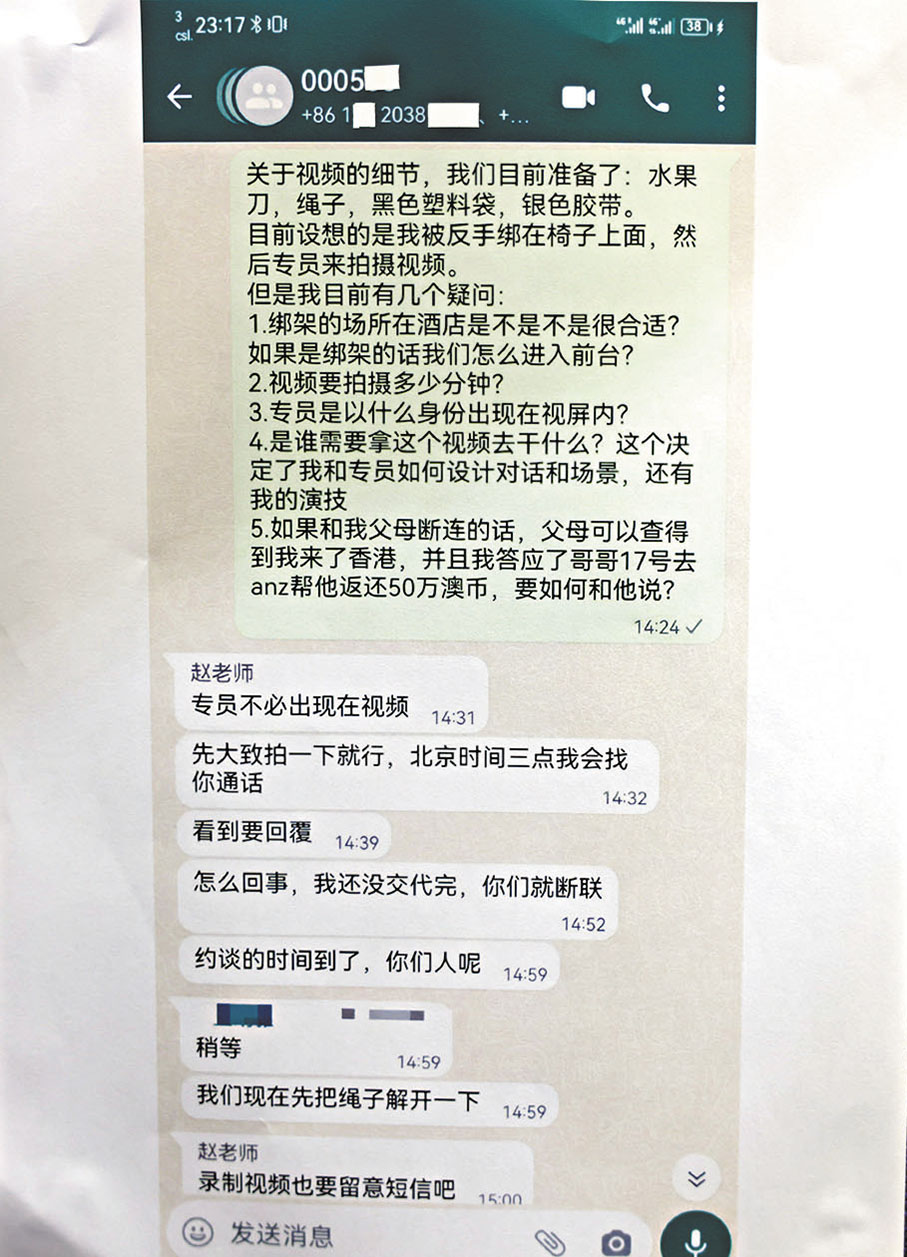 3
csl. 23:17
4G 4G 38
0005
+86 1 2038 、+...
关于视频的细节，我们目前准备了：水果
刀，绳子，黑色塑料袋，银色胶带。
目前设想的是我被反手绑在椅子上面，然
后专员来拍摄视频。
但是我目前有几个疑问：
1.绑架的场所在酒店是不是不是很合适？
如果是绑架的话我们怎么进入前台？
2.视频要拍摄多少分钟？
3.专员是以什么身份出现在视屏内？
4.是谁需要拿这个视频去干什么？这个决
定了我和专员如何设计对话和场景，还有
我的演技
5.如果和我父母断连的话，父母可以查得
到我来了香港，并且我答应了哥哥17号去
anz帮他返还50万澳币，要如何和他说？
14:24
赵老师
专员不必出现在视频 14:31
先大致拍一下就行，北京时间三点我会找
你通话
14:32
看到要回覆 14:39
怎么回事，我还没交代完，你们就断联
14:52
约谈的时间到了，你们人呢 14:59
稍等
14:59
我们现在先把绳子解开一下 14:59
赵老师
录制视频也要留意短信吧 15:00
发送消息